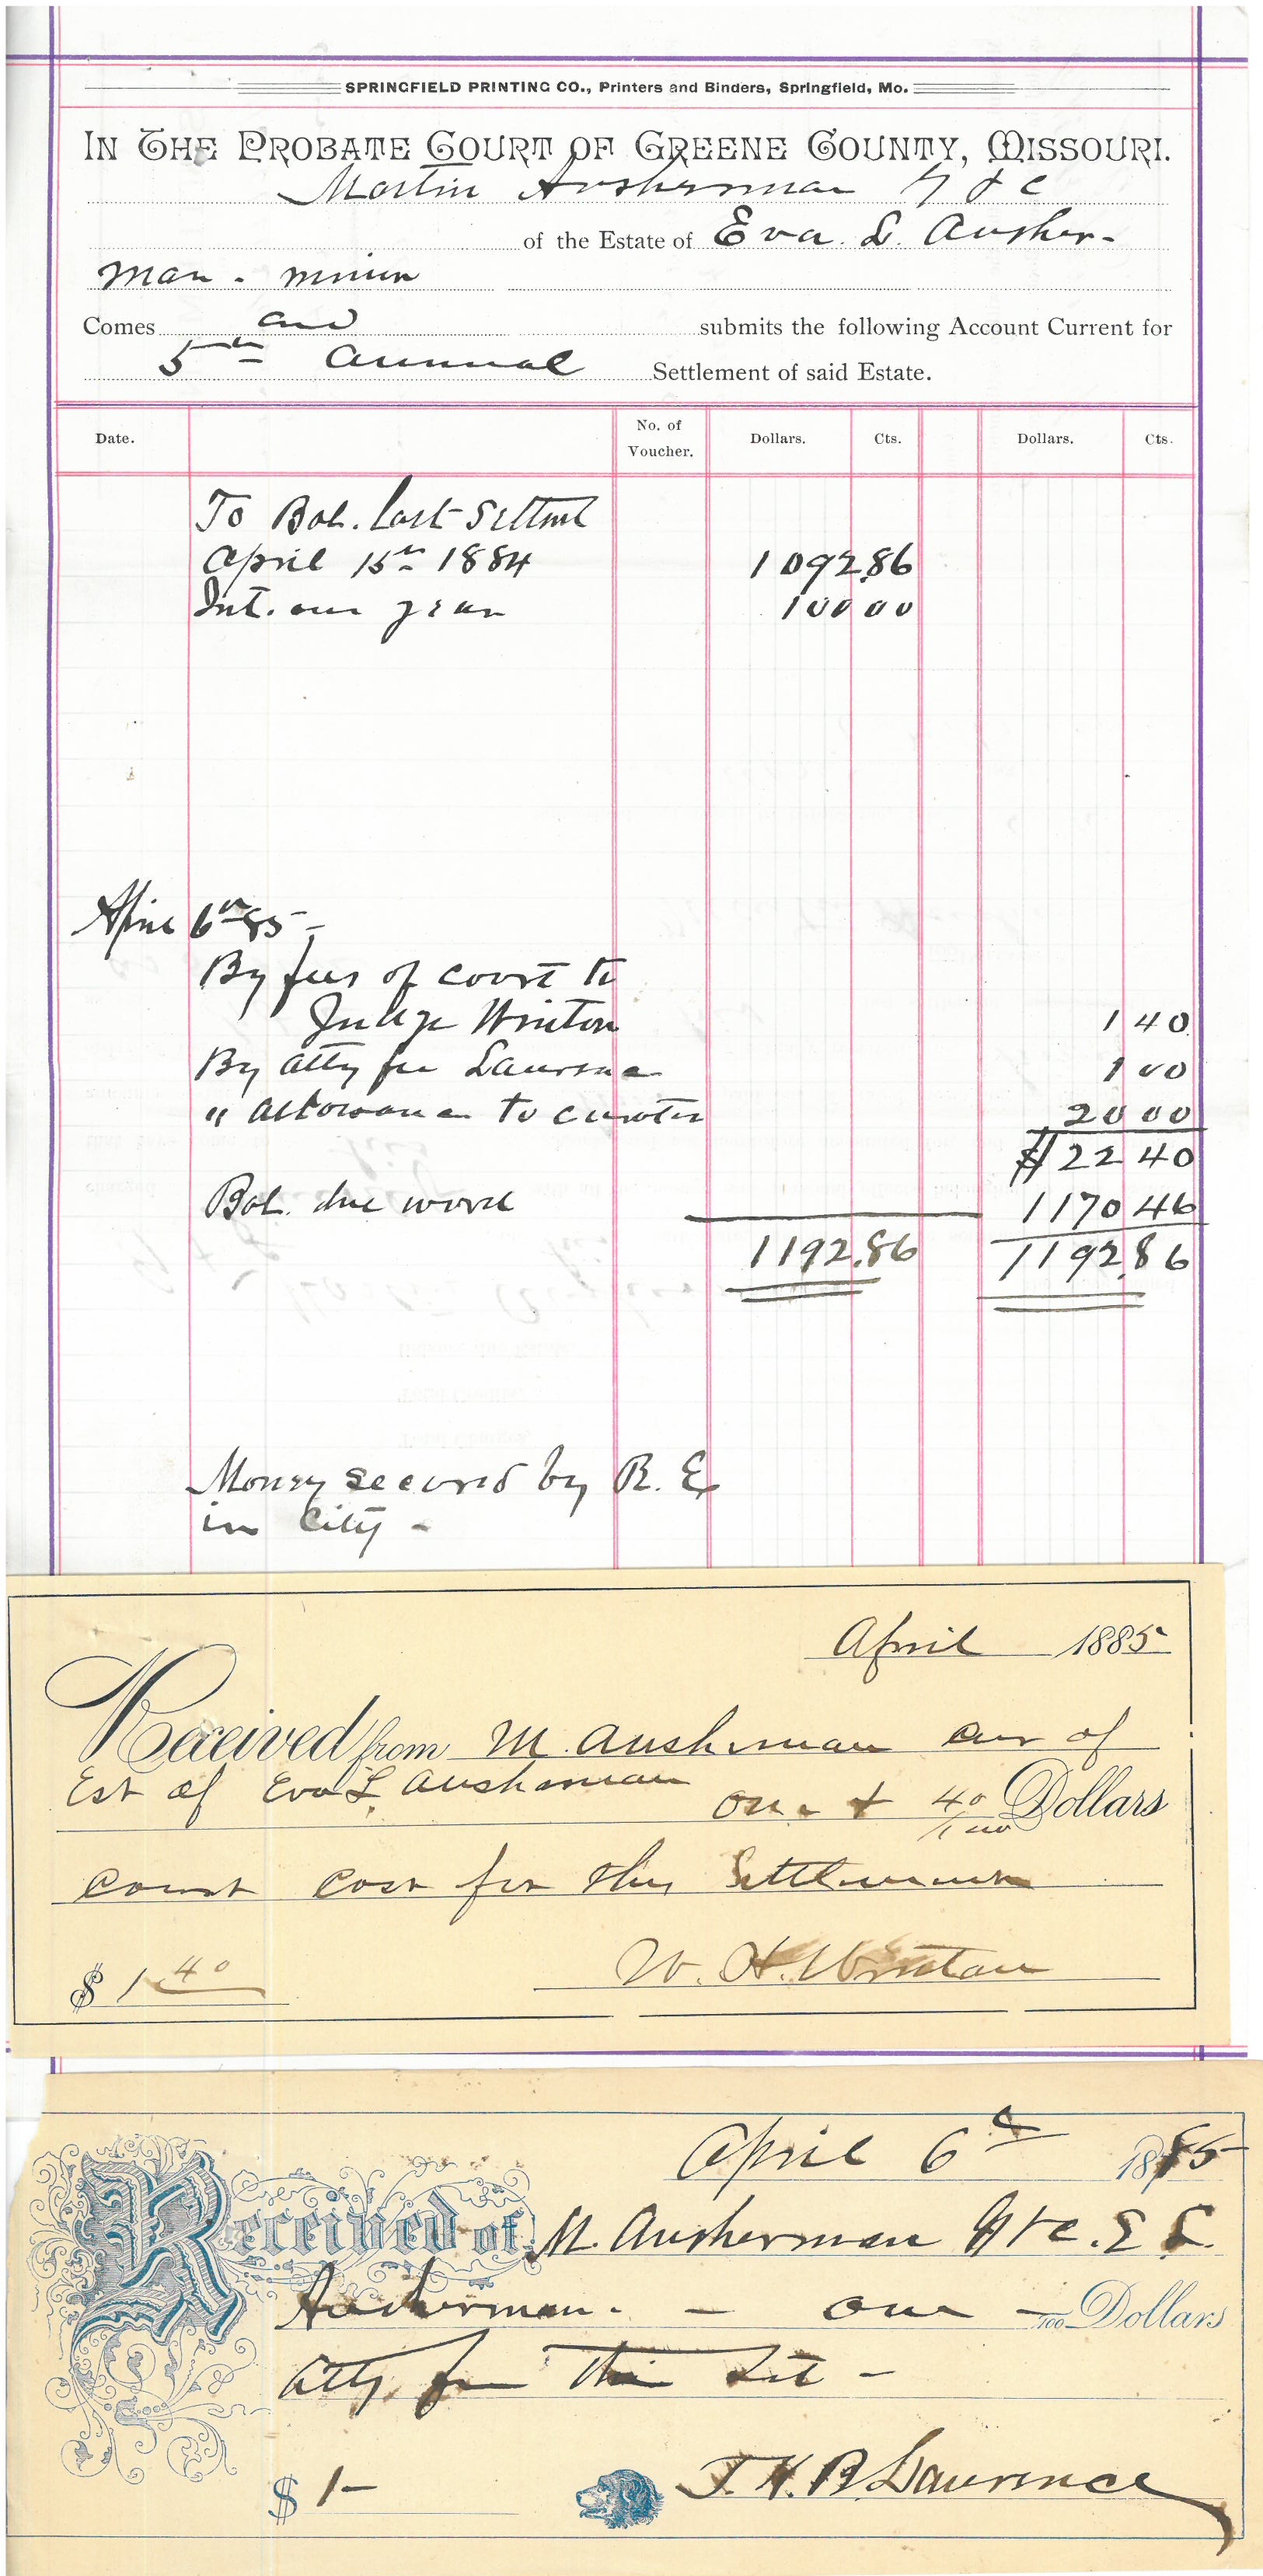 SPRINGFIELD PRINTING CO., Printers and Binders, Springfield, Mo.
IN THE PROBATE COURT OF GREENE COUNTY, MISSOURI.
Martin Ausherman G & C
of the Estate of Eva L. Ausher-
man - minor
Comes and submits the following Account Current for
5th annual Settlement of said Estate.
Date. No. of Voucher. Dollars. Cts. Dollars. Cts.
To Bal. Last Settmt
April 15th 1884 1092.86
Int. one year 100 00
April 6th 85 -
By fees of court to
Judge Winton 1 40
By atty fee Laurence 1 00
" allowance to curator 20 00
$ 22 40
Bal. due ward 1170 46
1192.86 1192.86
Money secured by R. E
in City -
April 1885
Received from M. Ausherman cur of
Est of Eva L. Ausherman one + 40/100 Dollars
court cost for this Settlement
$ 1 40 W. H. Winton
April 6th 1885
Received of M. Ausherman G & C. E L.
Ausherman. - one - /100 Dollars
atty fee this Set -
$ 1- J. H. B Laurence